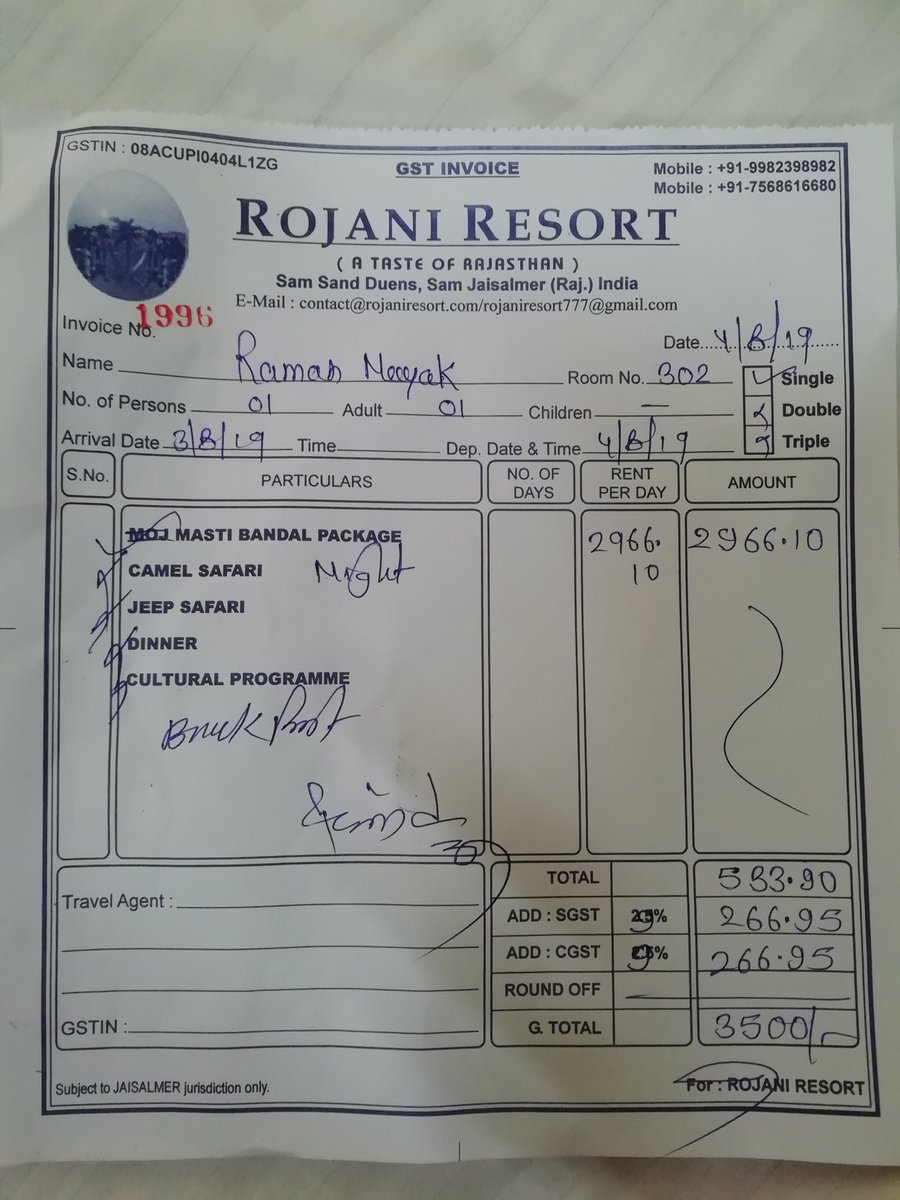 GSTIN : 08ACUPI0404L1ZG
GST INVOICE
Mobile : +91-9982398982
Mobile : +91-7568616680
ROJANI RESORT
( A TASTE OF RAJASTHAN )
Sam Sand Duens, Sam Jaisalmer (Raj.) India
E-Mail : contact@rojaniresort.com/rojaniresort777@gmail.com
Invoice No. 1996
Date 4/8/19
Name Raman Nayak Room No. 302 Single
No. of Persons 01 Adult 01 Children — Double
Arrival Date 3/8/19 Time Dep. Date & Time 4/8/19 Triple
S.No. PARTICULARS NO. OF DAYS RENT PER DAY AMOUNT
MOJ MASTI BANDAL PACKAGE 2966.10 2966.10
CAMEL SAFARI Night
JEEP SAFARI
DINNER
CULTURAL PROGRAMME
TOTAL 533.90
Travel Agent :
ADD : SGST 9% 266.95
ADD : CGST 9% 266.95
ROUND OFF
GSTIN :
G. TOTAL 3500/-
Subject to JAISALMER jurisdiction only.
For : ROJANI RESORT